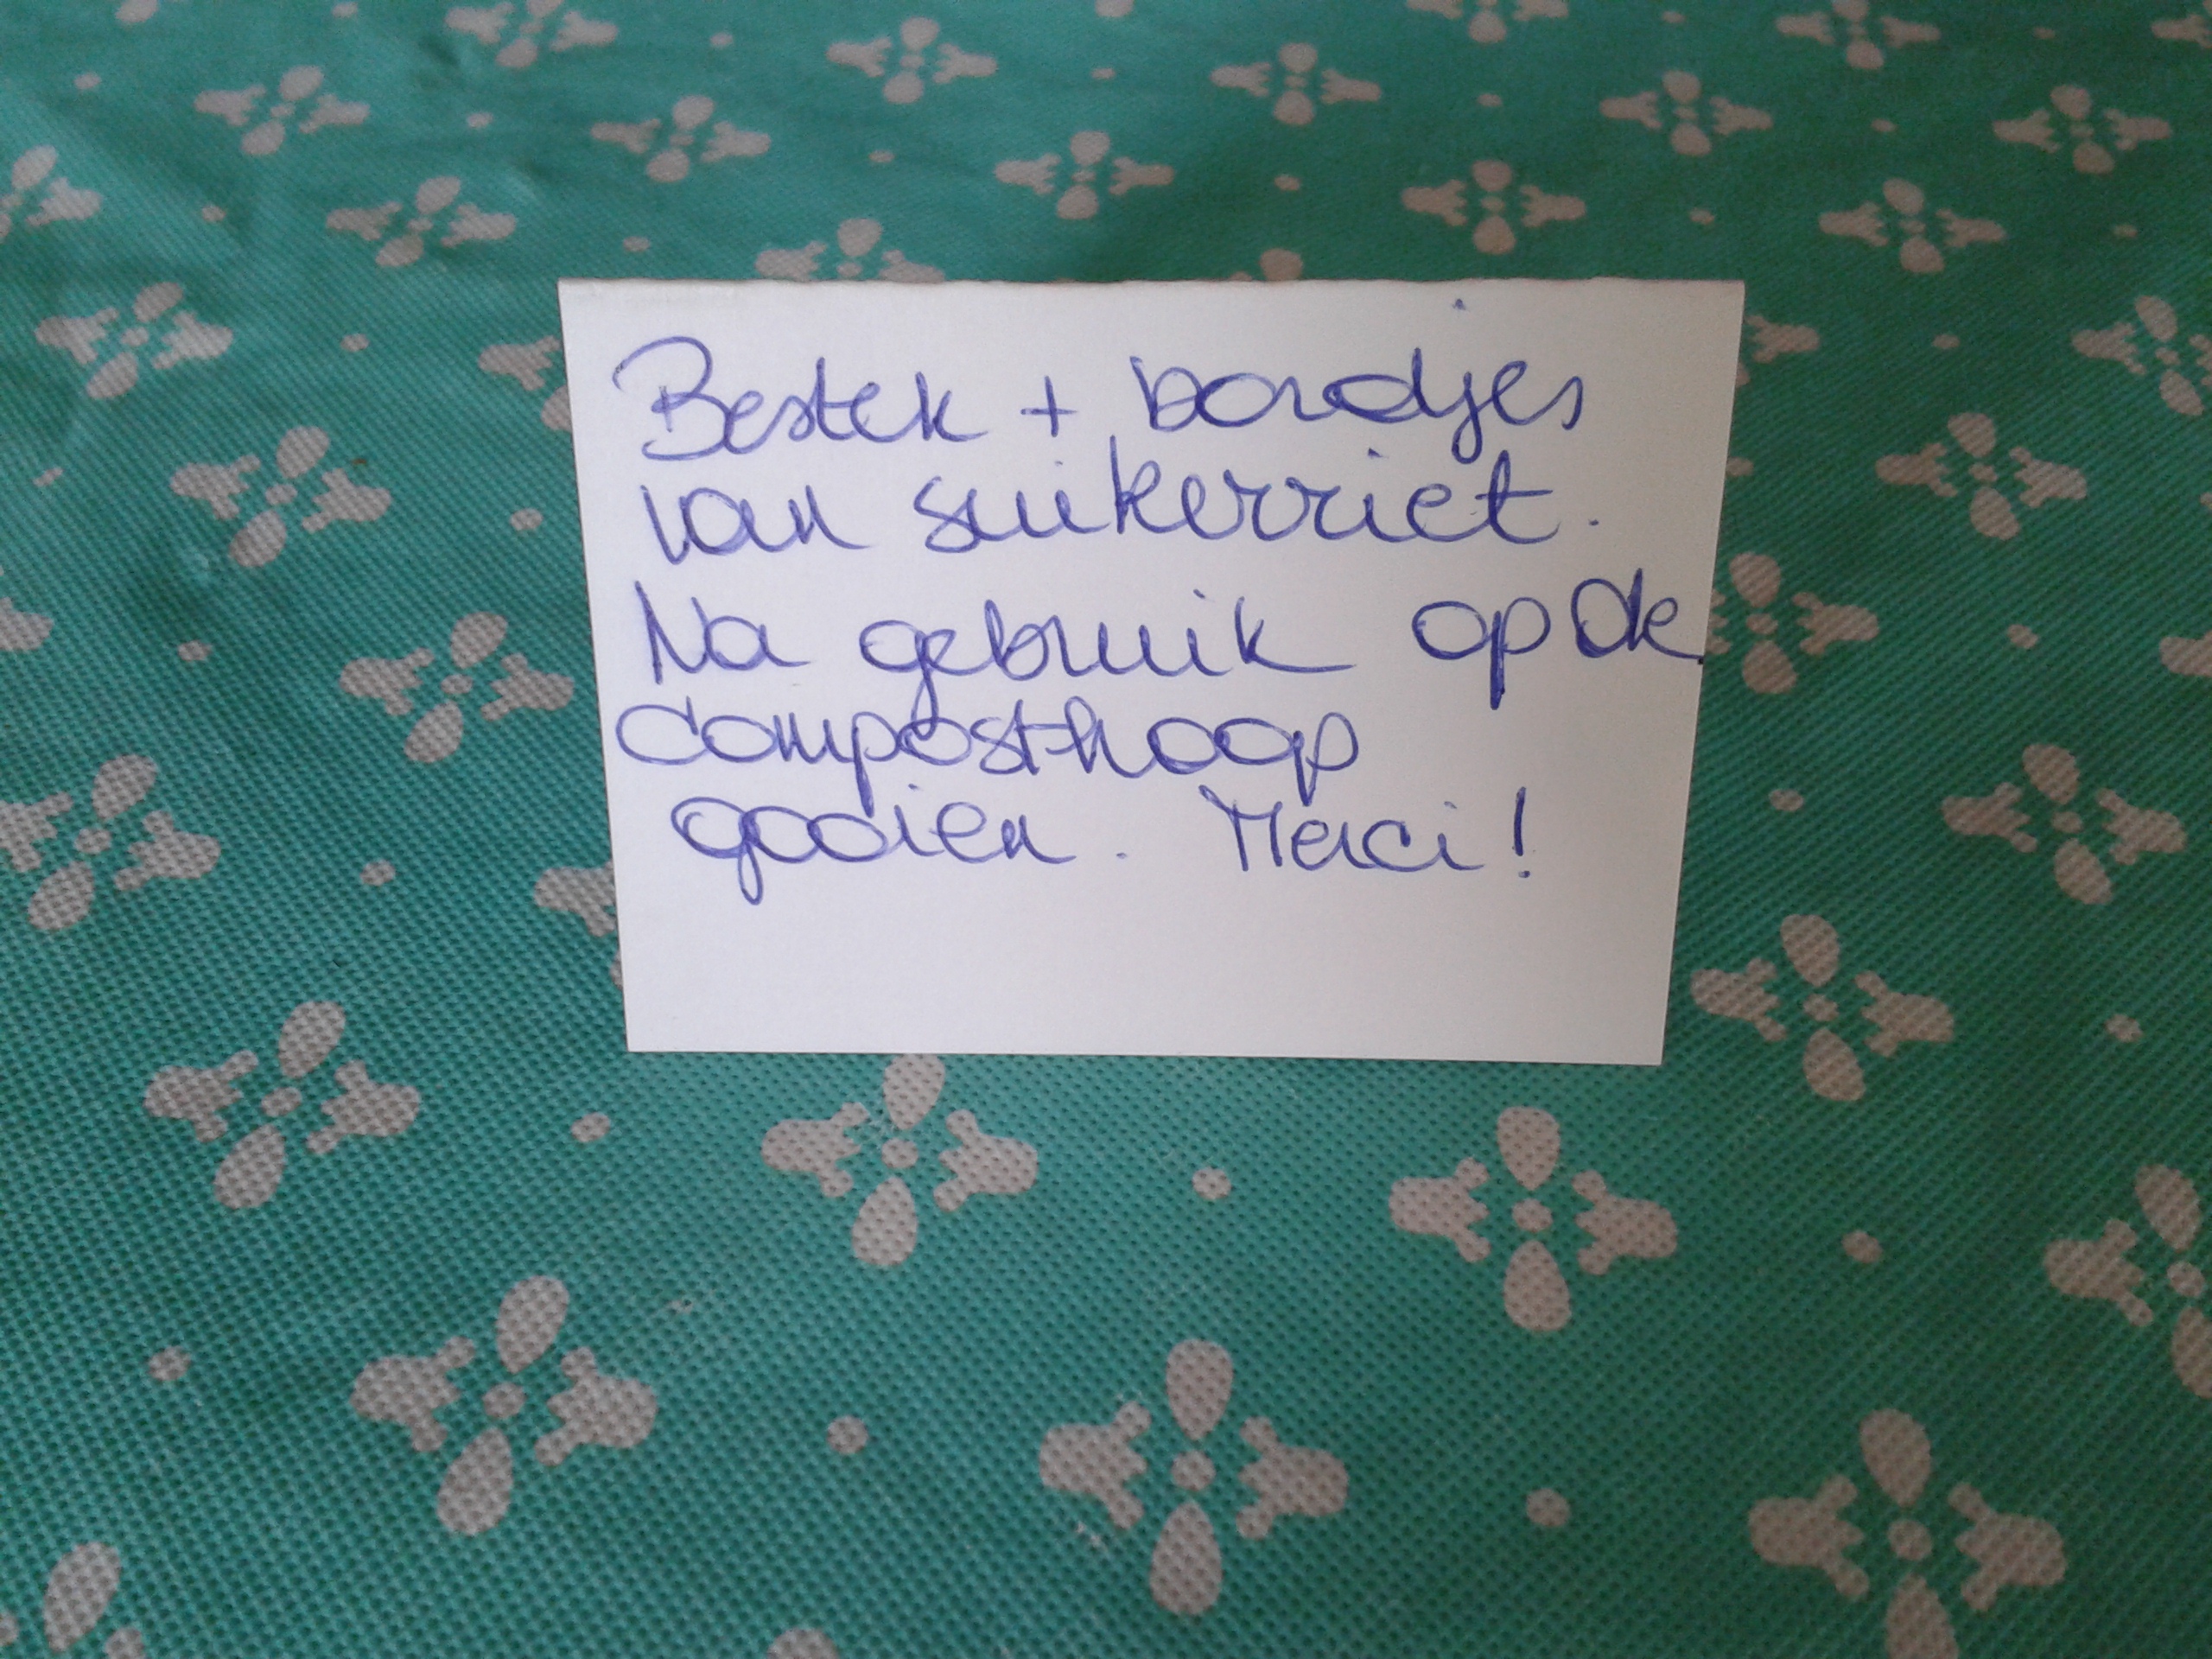 Bestek + bordjes
van suikerriet.
Na gebruik op de
composthoop
gooien. Merci!